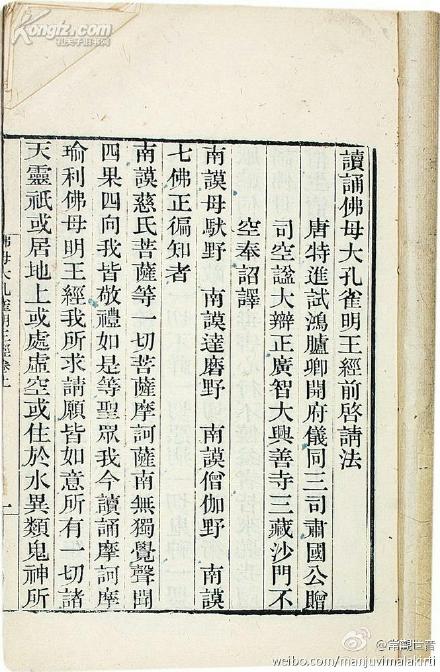 讀誦佛母大孔雀明王經前啓請法
唐特進試鴻臚卿開府儀同三司肅國公贈
司空諡大辯正廣智大興善寺三藏沙門不
空奉詔譯
南謨母馱野　南謨達磨野　南謨僧伽野　南謨
七佛正徧知者
南謨慈氏菩薩等一切菩薩摩訶薩南無獨覺聲聞
四果四向我皆敬禮如是等聖眾我今讀誦摩訶摩
瑜利佛母明王經我所求請願皆如意所有一切諸
天靈祇或居地上或處虛空或住於水異類鬼神所
佛母大孔雀明王經卷上
一
孔夫子舊書網
@常觀世音
weibo.com/manjuvimalakirti